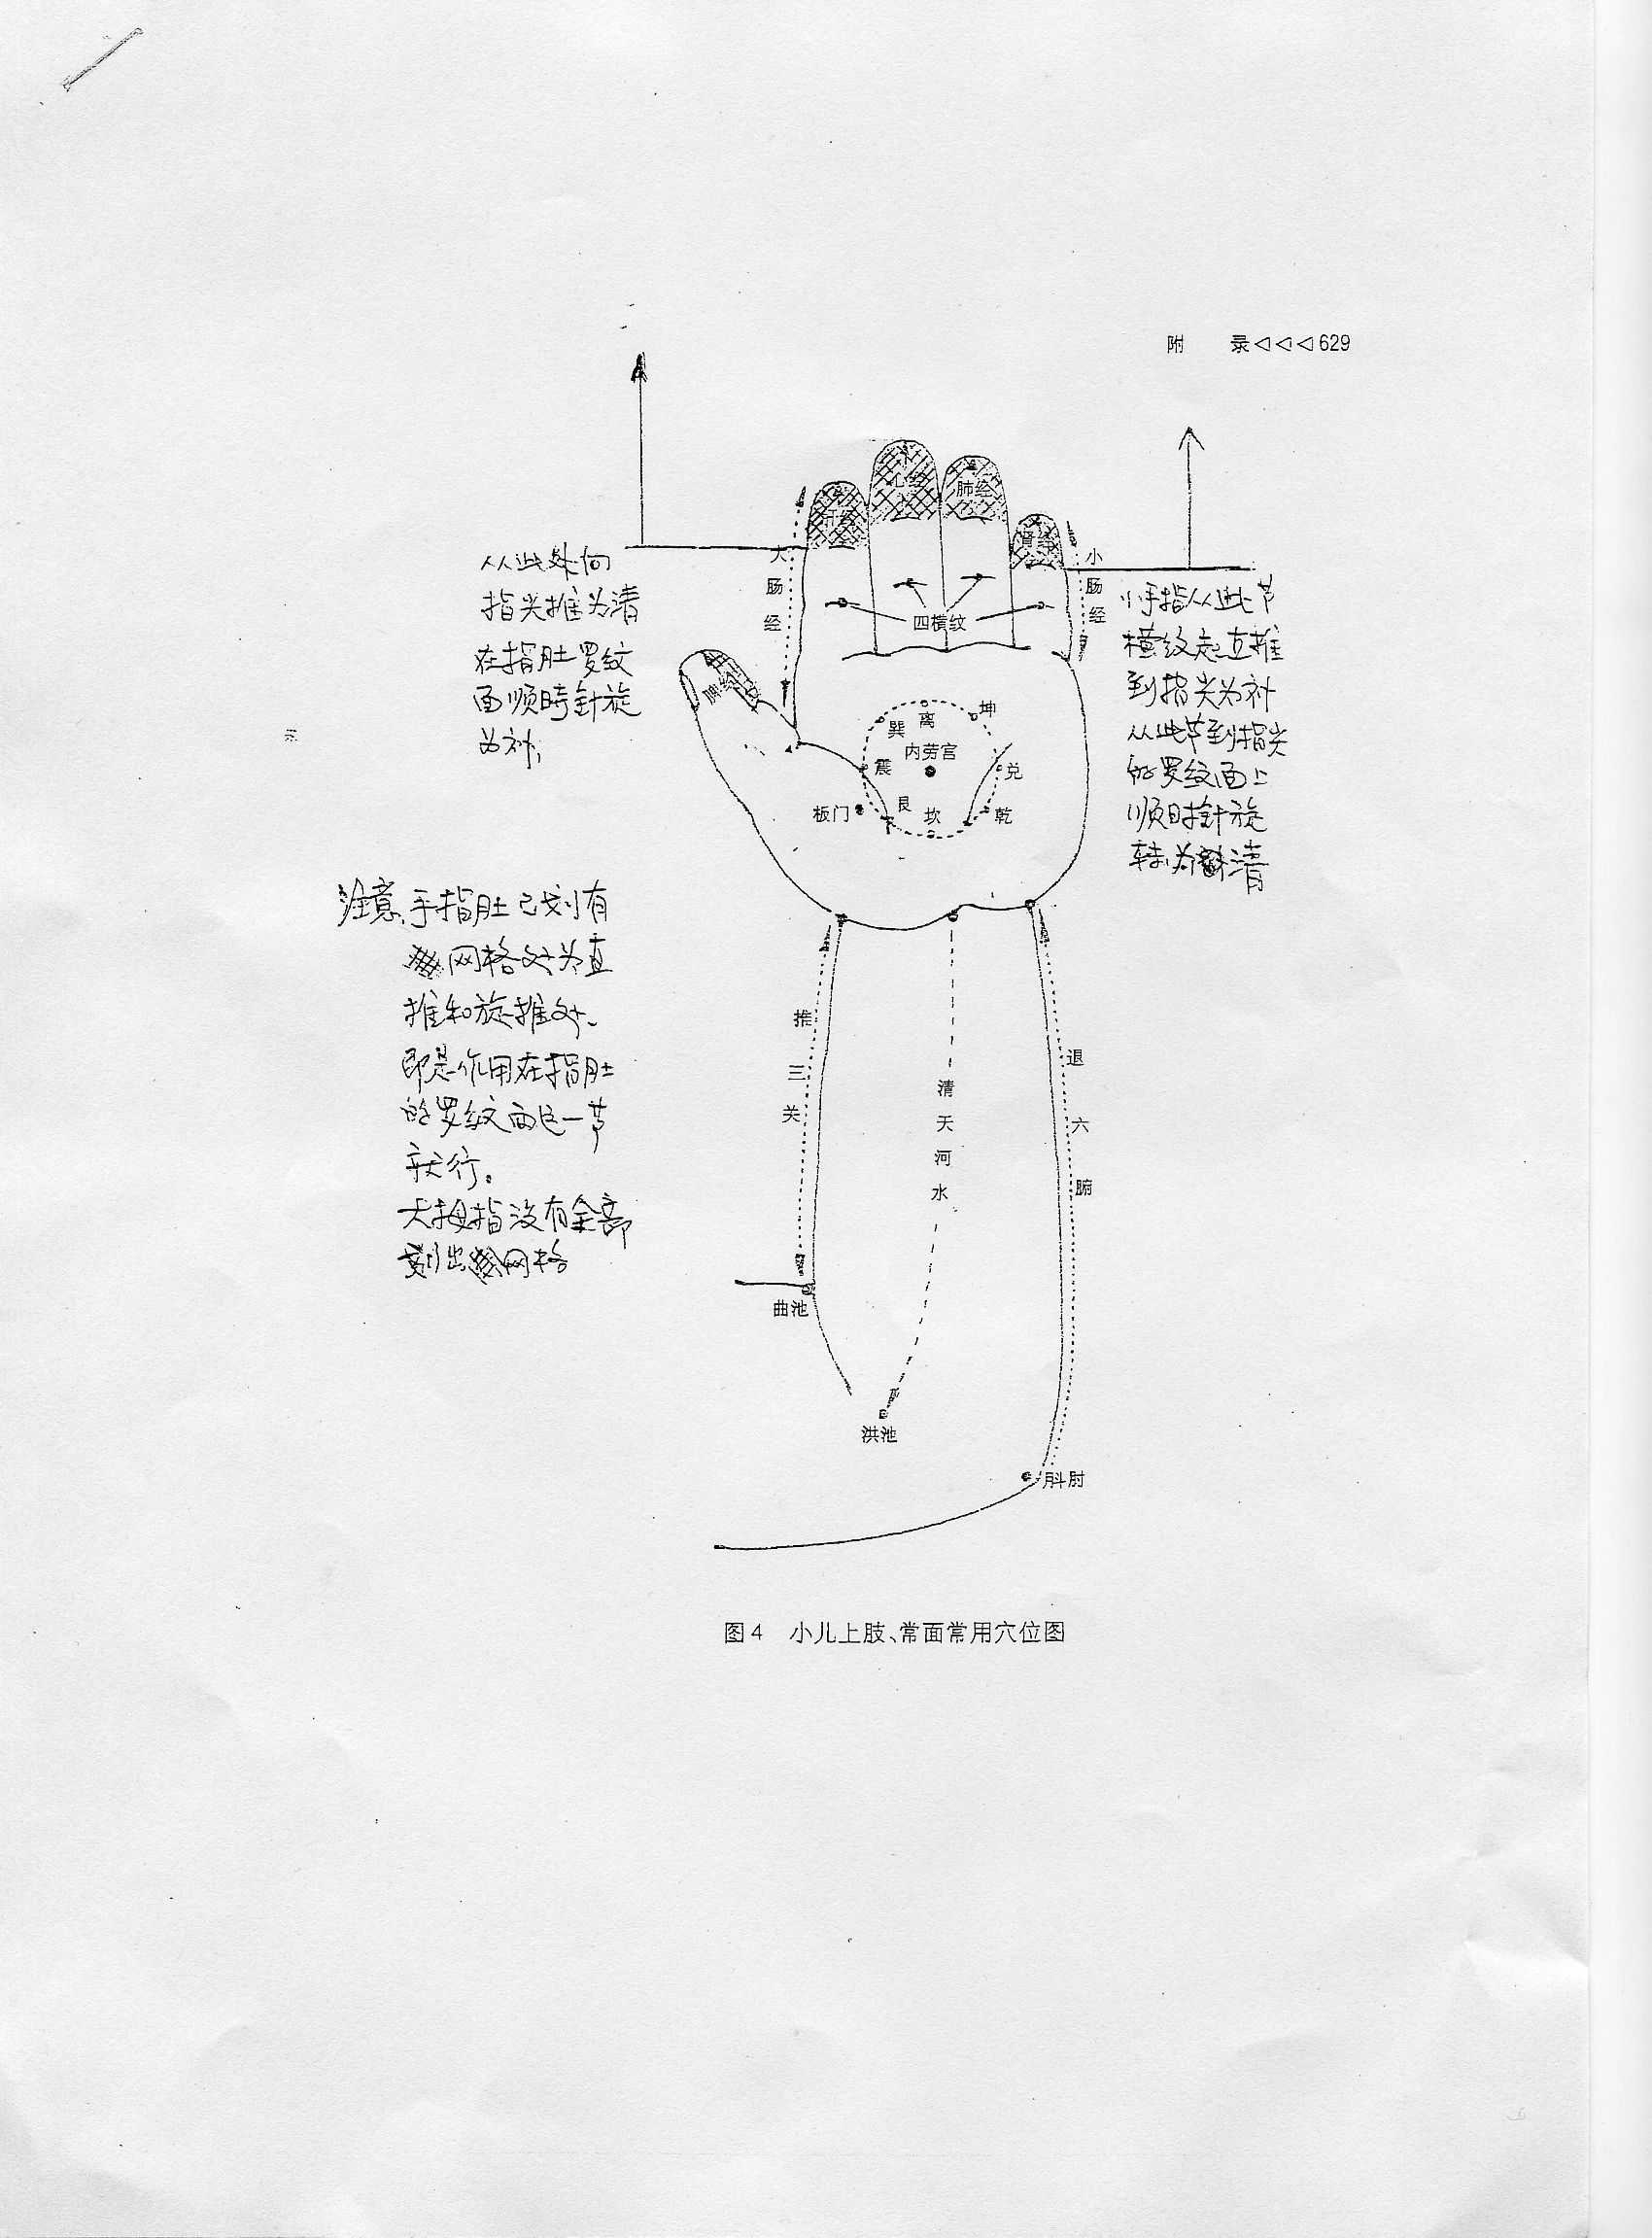 附 录◁◁◁629
从此处向
指尖推为清
在指肚罗纹
面顺時針旋
为补,
大肠经
心经
肺经
肾经
小肠经
四横纹
小手指从此节
横纹起直推
到指尖为补
从此节到指尖
的罗纹面上
顺时针旋
转为清
巽
离
坤
内劳宫
震
兑
板门
艮
坎
乾
注意、手指肚已划有
网格处为直
推和旋推处、
即是作用在指肚
的罗纹面这一节
就行。
大拇指没有全部
划出网格
推三关
清天河水
退六腑
曲池
洪池
䏡肘
图4 小儿上肢、常面常用穴位图